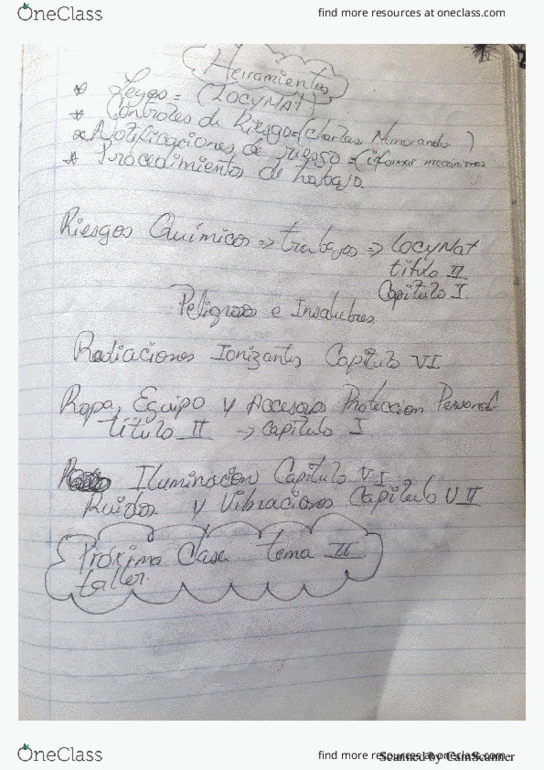 OneClass
find more resources at oneclass.com
Herramientas
* Leyes = (Locymat)
* Controles de Riesgo = (charlas Memorando)
* Notificaciones de riesgo = (informar mecanismos
* Procedimientos de trabajo.
Riesgos Químicos => trabajos => Locymat
titulo II
Capitulo I
Peligrosos e Insalubres
Radiaciones Ionizantes Capitulo VI
Ropa, Equipo y Accesorios Proteccion Personal
titulo II -> capitulo I
Iluminacion Capitulo VI
Ruidos y Vibraciones Capitulo VII
Próxima Clase tema II
taller.
OneClass
find more resources at oneclass.com
Scanned by CamScanner